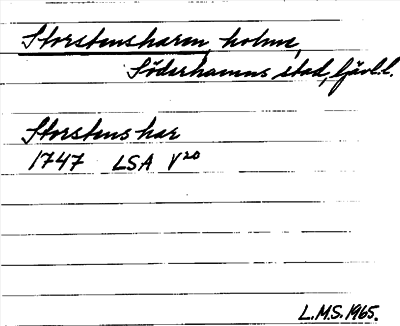 Storstensharen, holme,
Söderhamns stad, Gävl.l.
Storstens har
1747 LSA V20
L.M.S. 1965.